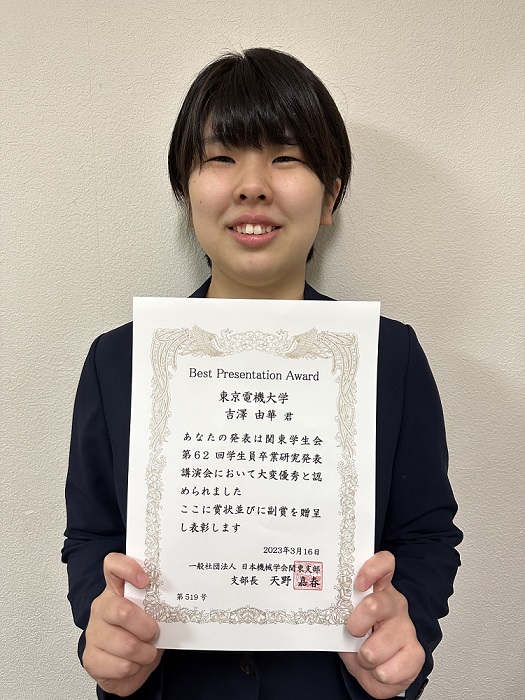 Best Presentation Award
東京電機大学
吉澤 由華 君
あなたの発表は関東学生会
第62回学生員卒業研究発表
講演会において大変優秀と認
められました
ここに賞状並びに副賞を贈呈
し表彰します
2023年3月16日
一般社団法人 日本機械学会関東支部
支部長 天野 嘉春
第519号